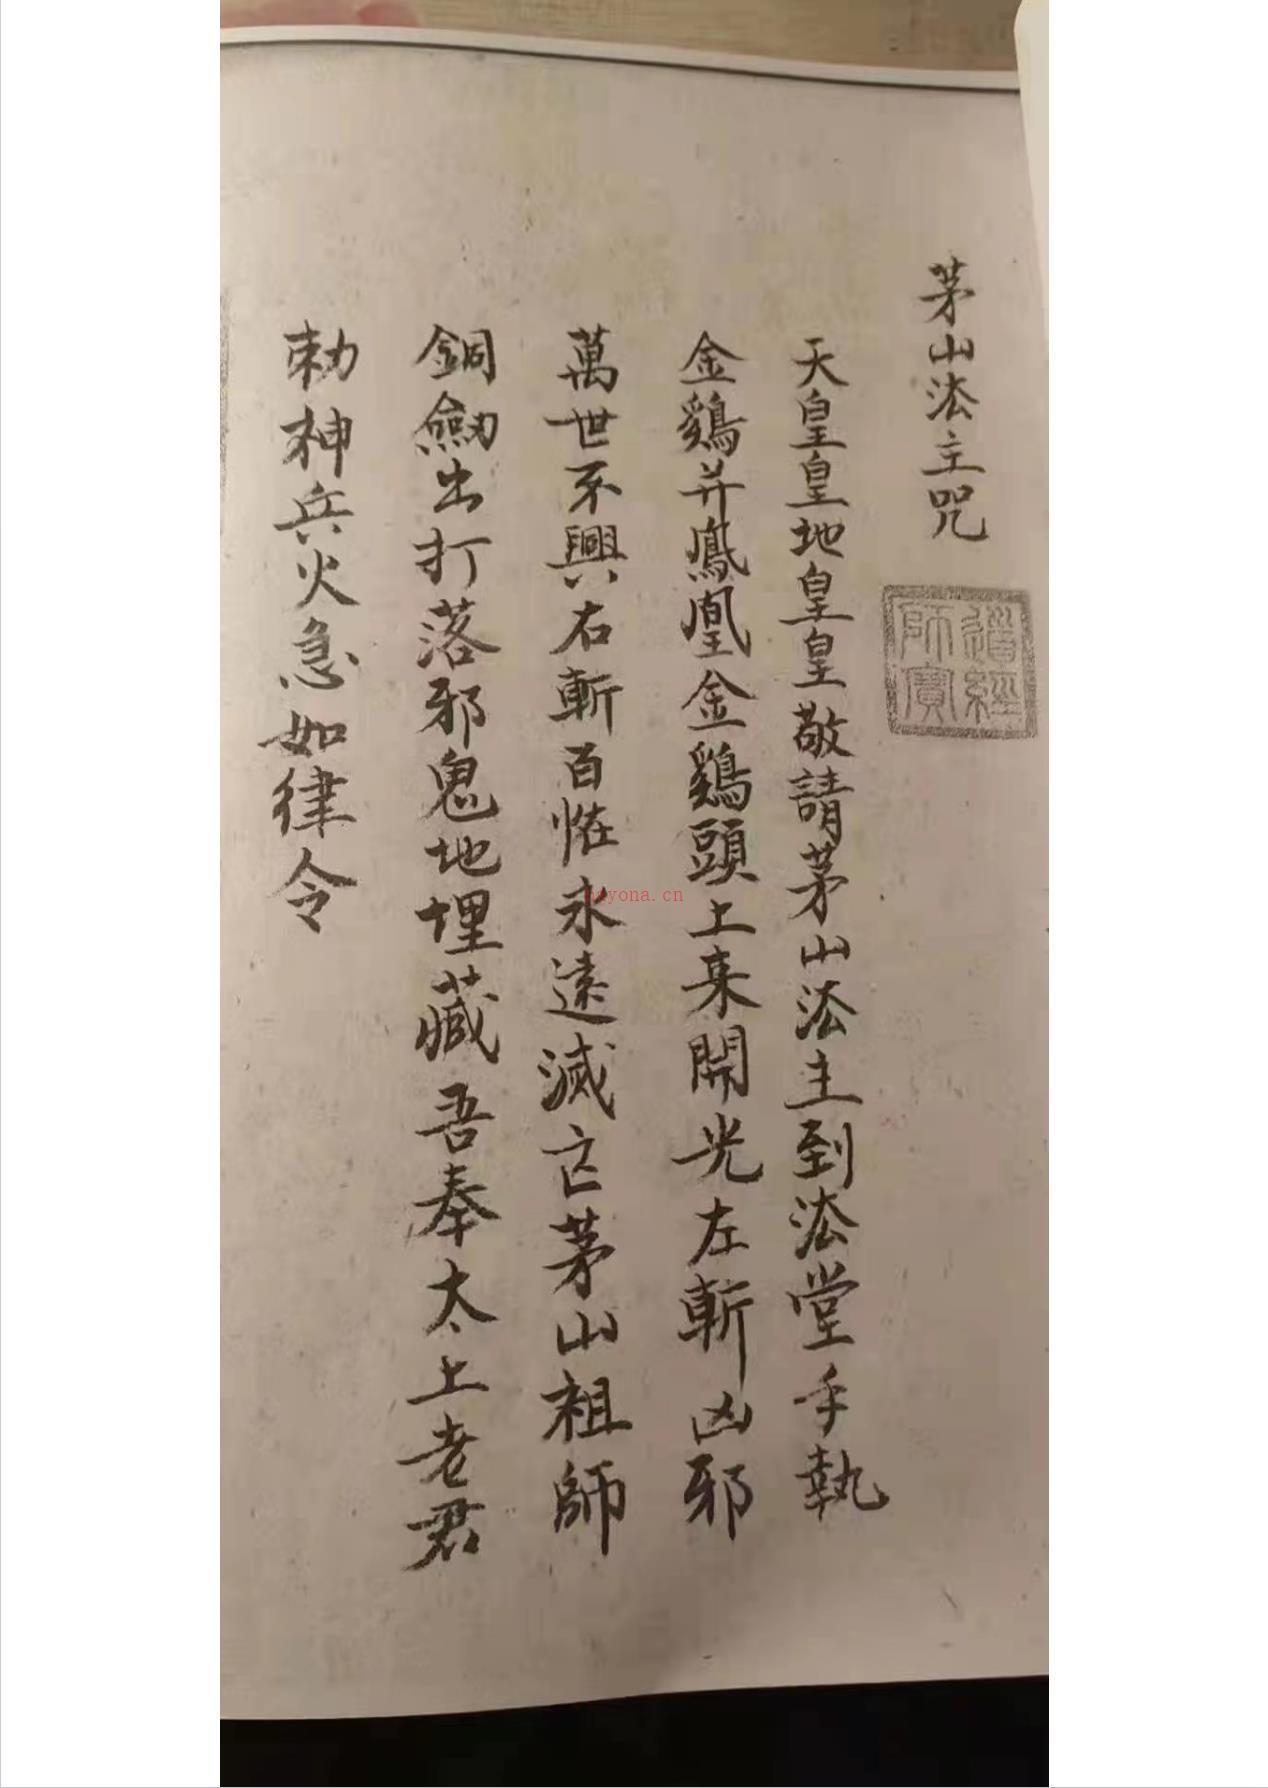 茅山法主咒
天皇皇地皇皇敬請茅山法主到法堂手執
金鷄并鳳凰金鷄頭上来開光左斬凶邪
萬世不興右斬百恠永遠滅亡茅山祖師
銅劔出打落邪鬼地埋藏吾奉太上老君
勅神兵火急如律令
道經師寳
nayona.cn